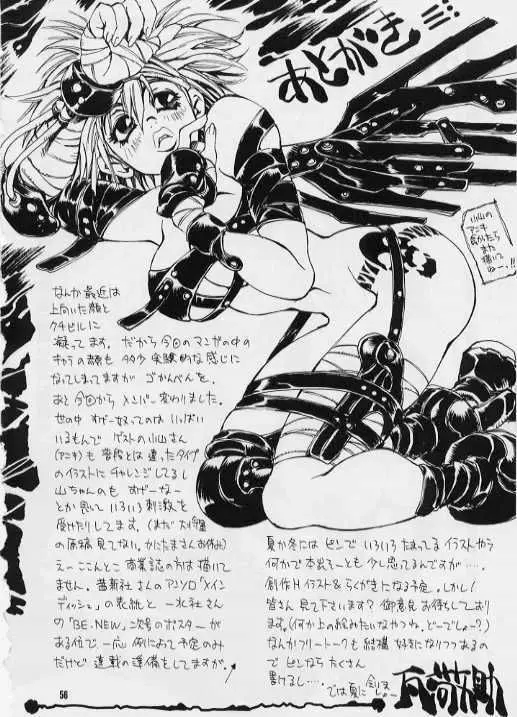 あとがき
小山の
アニキ
なんか最近は
上向いた顔と
クチビルに
凝ってます。だから今回のマンガの中の
キャラの顔も 多少実験的な感じに
なってしまってますが ごかんべんを。
あと 今回から メンバー変わりました。
世の中 すげー奴ってのは いっぱい
いるもんで ゲストの小山さん
(アニキ)も 普段とは違ったタイプ
のイラストに チャレンジしてるし
山ちゃんのも すげーなー
とか思って いろいろ刺激を
受けたりしてます。(まだ
の原稿 見てない。かにたまさんお休み)
えー ここんとこ 商業誌の方は描いて
ません。 さんのアンソロ「メイン
ディッシュ」の表紙と 一水社さんの
「BE-NEW」二次号のポスターが
ある位で 一応 例によって予定のみ
だけど 連載の準備をしてますが。
夏か冬には ピンで いろいろ たまってる イラストやら
何かで 本出そーとも 少し思ってるんだけど。
創作H イラスト&らくがきになる予定。しかし!
皆さん 見て下さいます? 御意見 お待ちしており
ます。(何か上の絵みたいなやつね。どーでしょー?)
なんかフリートークも 結構 好きになりつつあるの
で ピンなら たくさん
書けるし‥‥。
では夏に 会いましょー
56